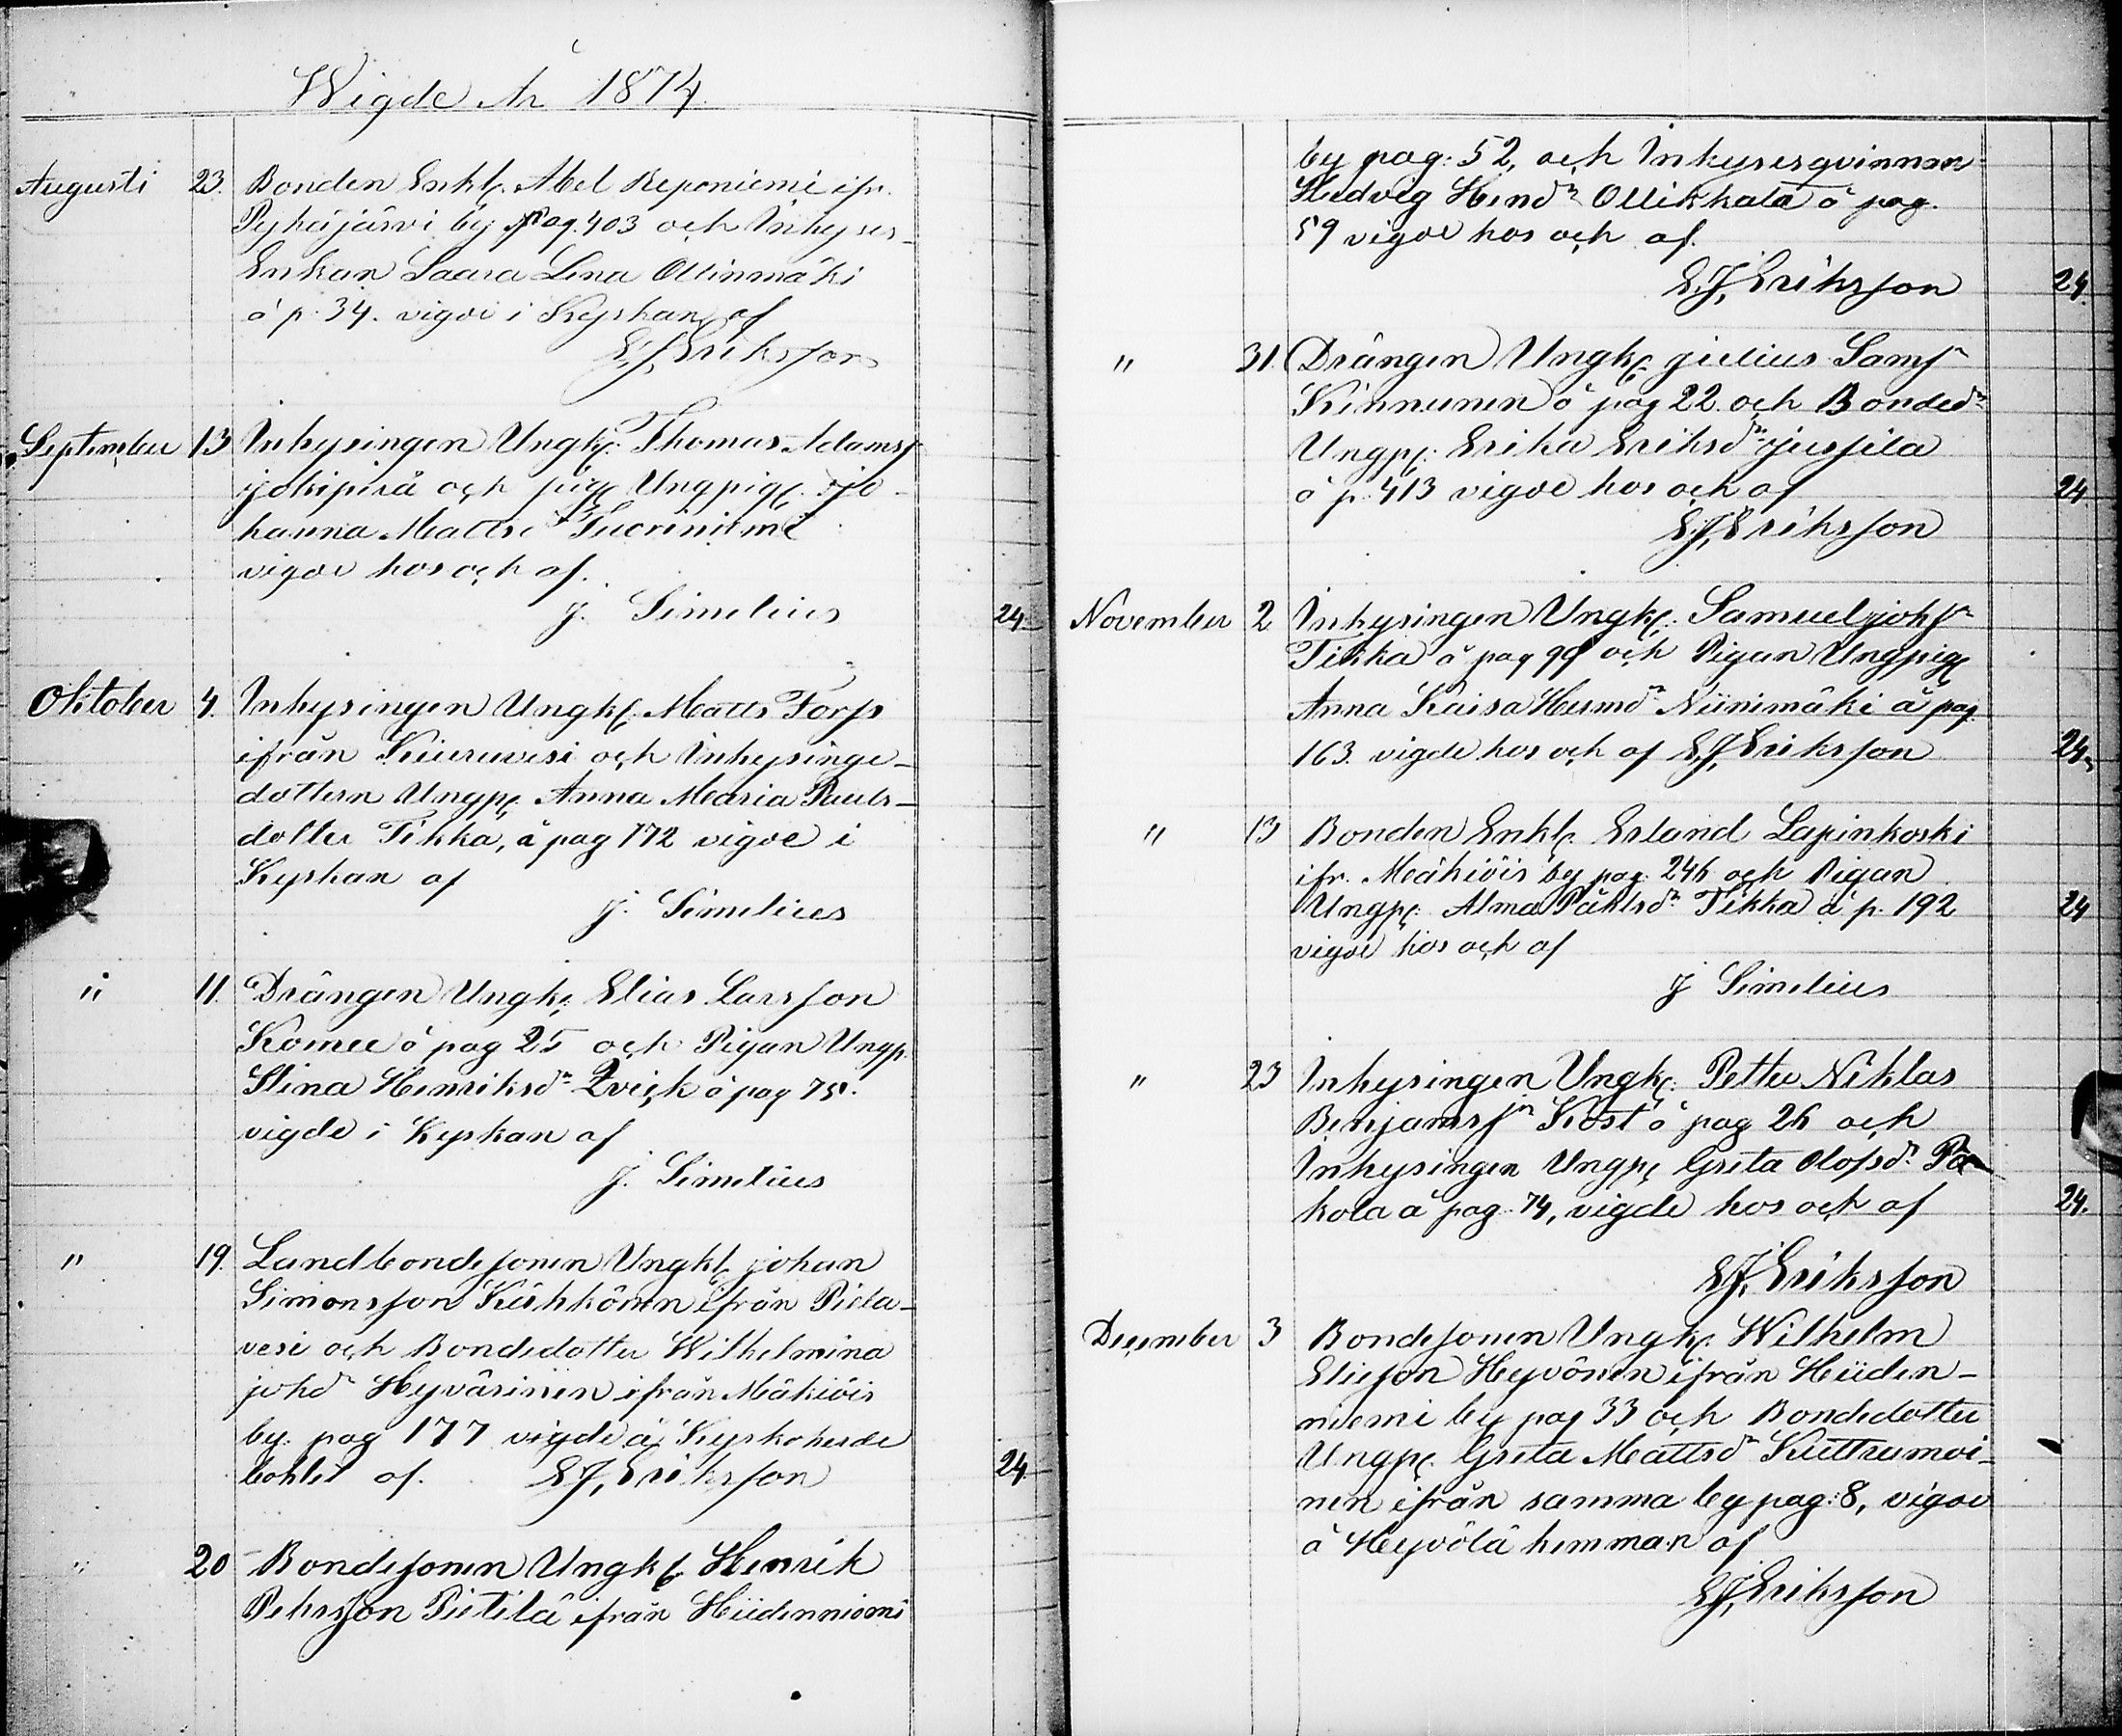 Wigde År 1874.
Augusti 23. Bonden Enkl. Abel Reponiemi ifr.
Pyhäjärvi by pag. 403 och Inhyses-
Enkan Saara Lena Ollinmäki
å p. 34. vigde i Kyrkan af
E.J. Eriksson
September 13 Inhysingen Ungk. Thomas Adamsf
Jokipirå och pig. Ungpig. Jo-
hanna Mattsd Tuoriniemi
vigde hos och af.
J. Simelius 24.
Oktober 4. Inhysingen Ungk. Matts Forss
ifrån Kiuruvesi och Inhysinge-
dottern Ungp. Anna Maria Pauls-
dotter Tikka, å pag 172 vigde i
Kyrkan af
J. Simelius
" 11. Drängen Ungk. Elias Larsson
Komu å pag 25 och Pigan Ungp.
Stina Henriksdr Qvick å pag 75.
vigde i Kyrkan af
J. Simelius
" 19. Landbondesonen Ungkl Johan
Simonsson Kärkkönen ifrån Piela-
vesi och Bondedotter Wilhelmina
Johdr Hyvärinen ifrån Mäkiöis
by. pag 177 vigde å Kyrkoherde
bohlet af. E.J. Eriksson 24
" 20 Bondesonen Ungk. Henrik
Pehrsson Pietilä ifrån Hiidenniemi
by pag: 52, och Inhysesqvinnan
Hedvig Hendr Ollikkala å pag.
59 vigde hos och af.
E.J. Eriksson 24.
" 31. Drängen Ungk. Julius Samsn
Kinnunen å pag 22. och Bondedr
Ungp. Erika Eriksdr Jussila
å p. 413 vigde hos och af 24
E.J. Eriksson
November 2. Inhysingen Ungk. Samuel Johsn
Tikka å pag 99 och Pigan Ungpig
Anna Kaisa Hermdr Niinimäki å pag
163. vigde hos och af E.J. Eriksson 24.
" 13 Bonden Enkl. Erland Lapinkoski
ifr. Mäkiöis by pag. 246 och Pigan
Ungp. Alma Påhlsdr Tikka å p. 192 24
vigde hos och af
J Simelius
" 23 Inhysingen Ungk. Petter Niklas
Benjamsfn Kost å pag 26 och
Inhysingen Ungp. Greta Olofsdr
kola å pag. 74, vigde hos och af 24.
E.J. Eriksson
December 3 Bondesonen Ungk. Wilhelm
Eliesson Hyvönen ifrån Hiiden-
niemi by pag 33 och Bondedotter
Ungp. Greta Mattsdr
nen ifrån samma by pag: 8, vigde
å Hyvölä hemman af
E.J. Eriksson